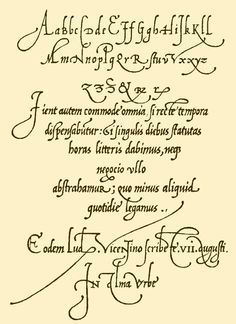 AabbcCcdeEffGghHiIkkll
MmNnopPqQrR.ſtuvVxxyz
Fient autem commode omnia, ſi recte tempora
diſpenſabütur: Et ſi ſingulis diebus ſtatutas
horas litteris dabimus, neq3
negocio vllo
abſtrahamur; quo minus aliquid
quotidie legamus ..
Eodem Lud. Vicentino ſcribẽte. vii. auguſti.
IN Alma Vrbe